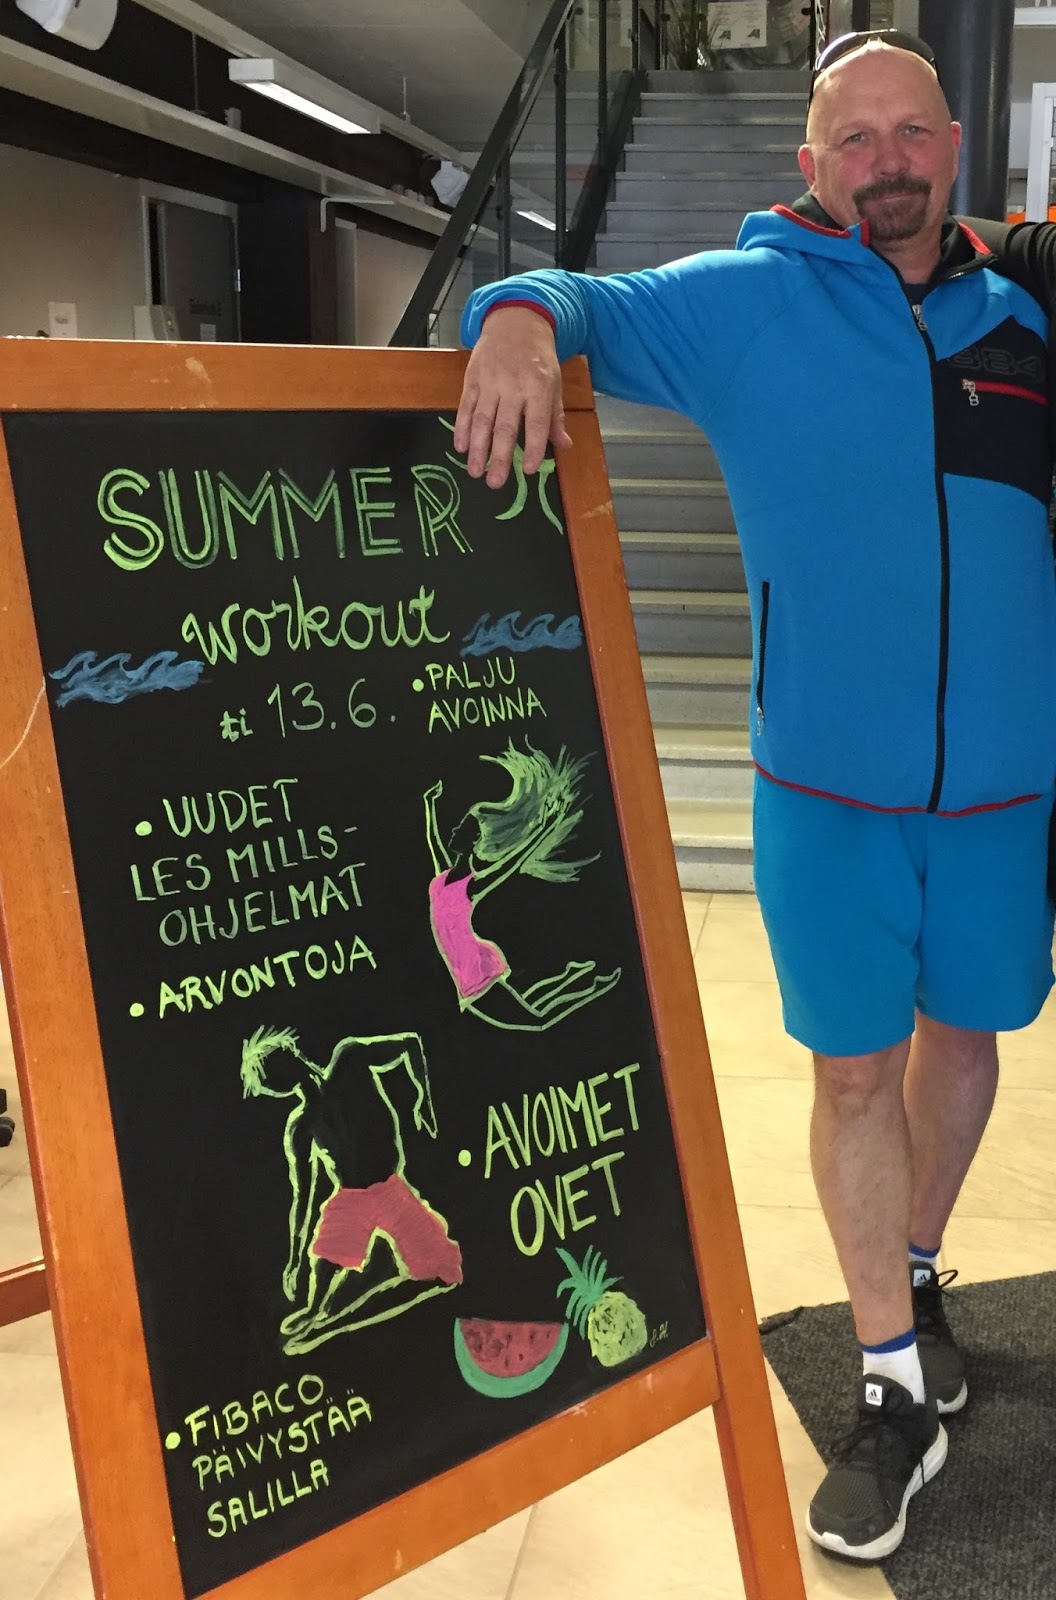 SUMMER
workout
ti 13.6.
• PALJU
AVOINNA
• UUDET
LES MILLS-
OHJELMAT
• ARVONTOJA
• AVOIMET
OVET
• FIBACO
PÄIVYSTÄÄ
SALILLA
J.H.
884
adidas
adidas